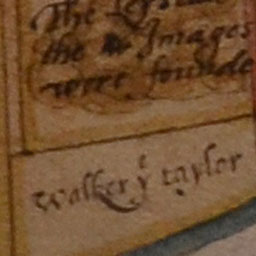 The
the Images
were founde
walker yᵉ taylor